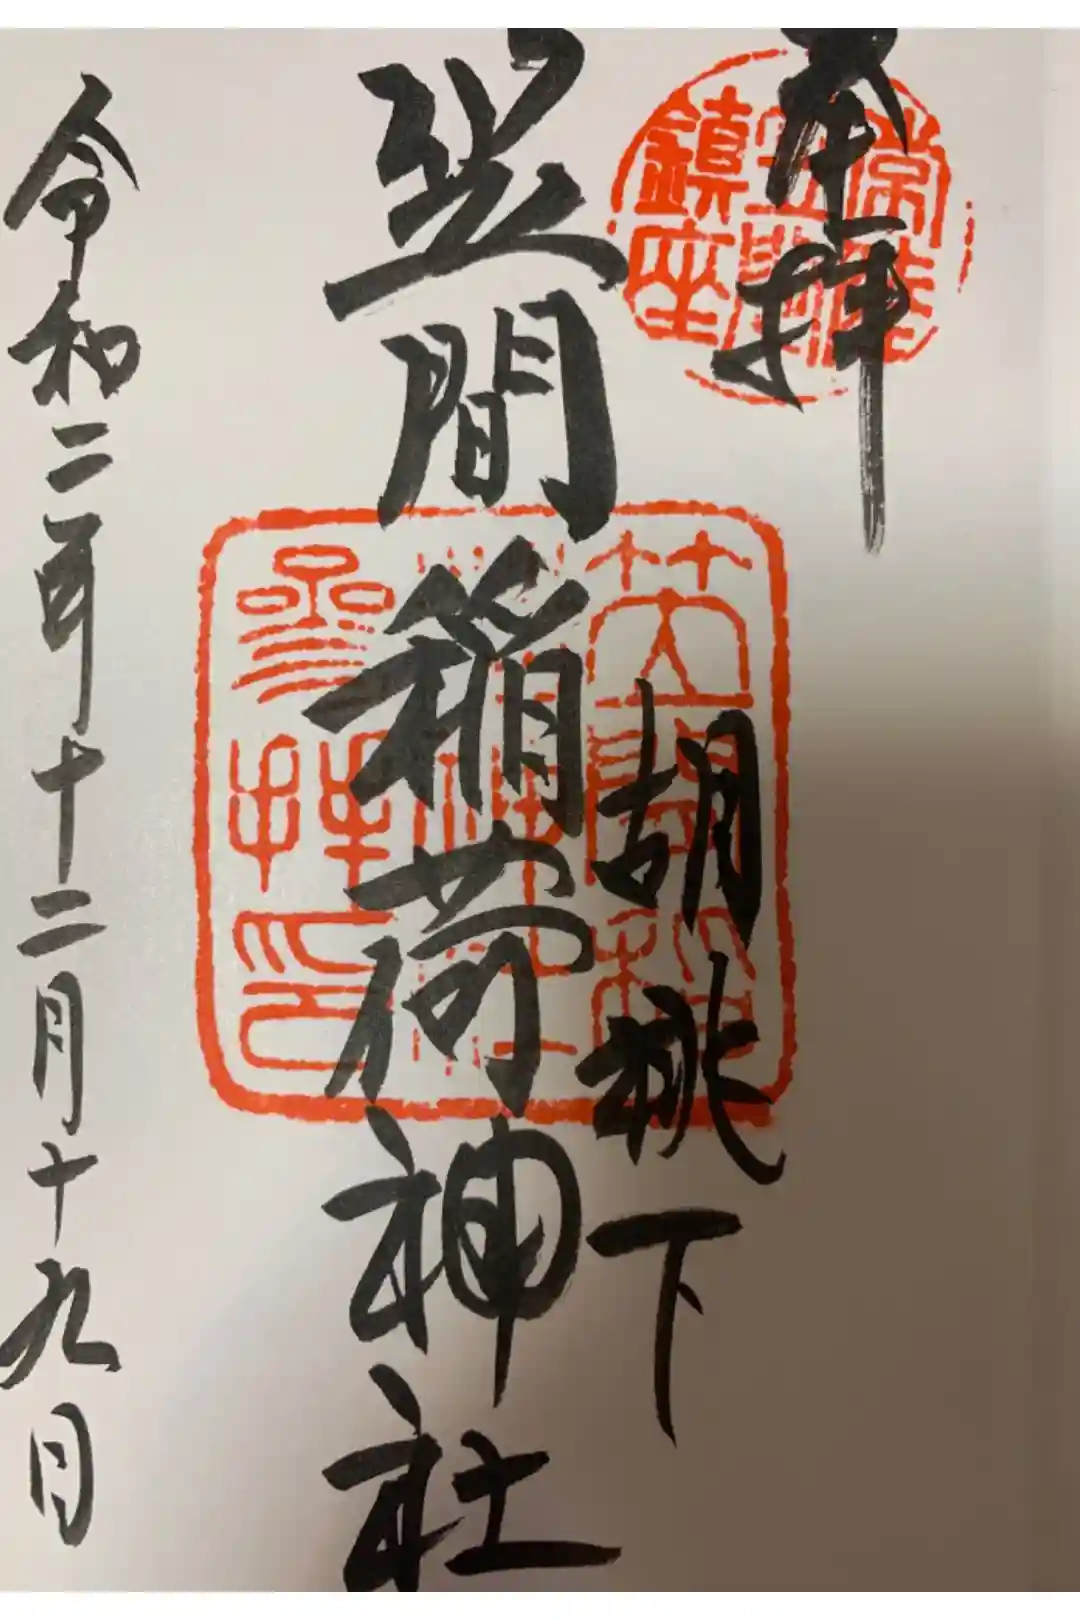 奉拝
常陸
笠間
鎮座
胡桃下
笠間稲荷神社
笠間稲
荷神社
参拝印
令和二年十二月十九日